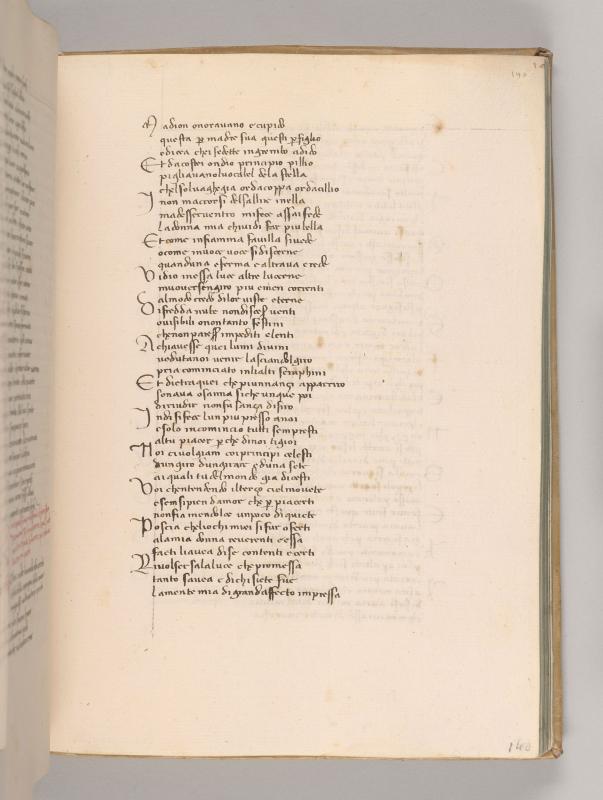 140
M adion onoravano e cupido
questa p madre sua questi p figlio
e dicea chei sedette in grembo a dido
Et da costei ondio principio pillio
pigliavano luocabel dela stella
chel sol vagheggia or da coppa or da cillio
I non maccorsi del sallire in ella
ma desserventro mi fece assai fede
la donna mia chi vidi far piu bella
Et come in fiamma favilla si vede
o come in voce voce si discerne
quanduna e ferma e altra va e rede
V idio in essa luce altre lucerne
muoversi in giro piu e men correnti
al modo credo di lor viste eterne
D i fredda nube non disceser venti
o visibili o non tanto festini
che non paresser impediti e lenti
A chi avesse quei lumi divini
veduti a noi venir lasciando l giro
pria cominciato in li alti seraphini
Et dietro a quei che piu innanzi appariro
sonava osanna si che unque poi
di riudir non fu sanza disiro
I ndi si fece lun piu presso a noi
e solo incomincio tutti sem presti
al tu piacer p che di noi ti gioi
N oi ci volgiam coi principi celesti
dun giro dun girar e duna sete
ai quali tu del mondo gia dicesti
V oi che ntendendo il terço ciel movete
e sem si pien damor che p piacerti
non fia men dolce un poco di quiete
P oscia che li ochi miei si fur offerti
ala mia donna reverenti e essa
facti li avea di se contenti e certi
R ivolser sa la luce che promessa
tanto savea e di chi siete fue
la mente mia di grande affecto impressa
140